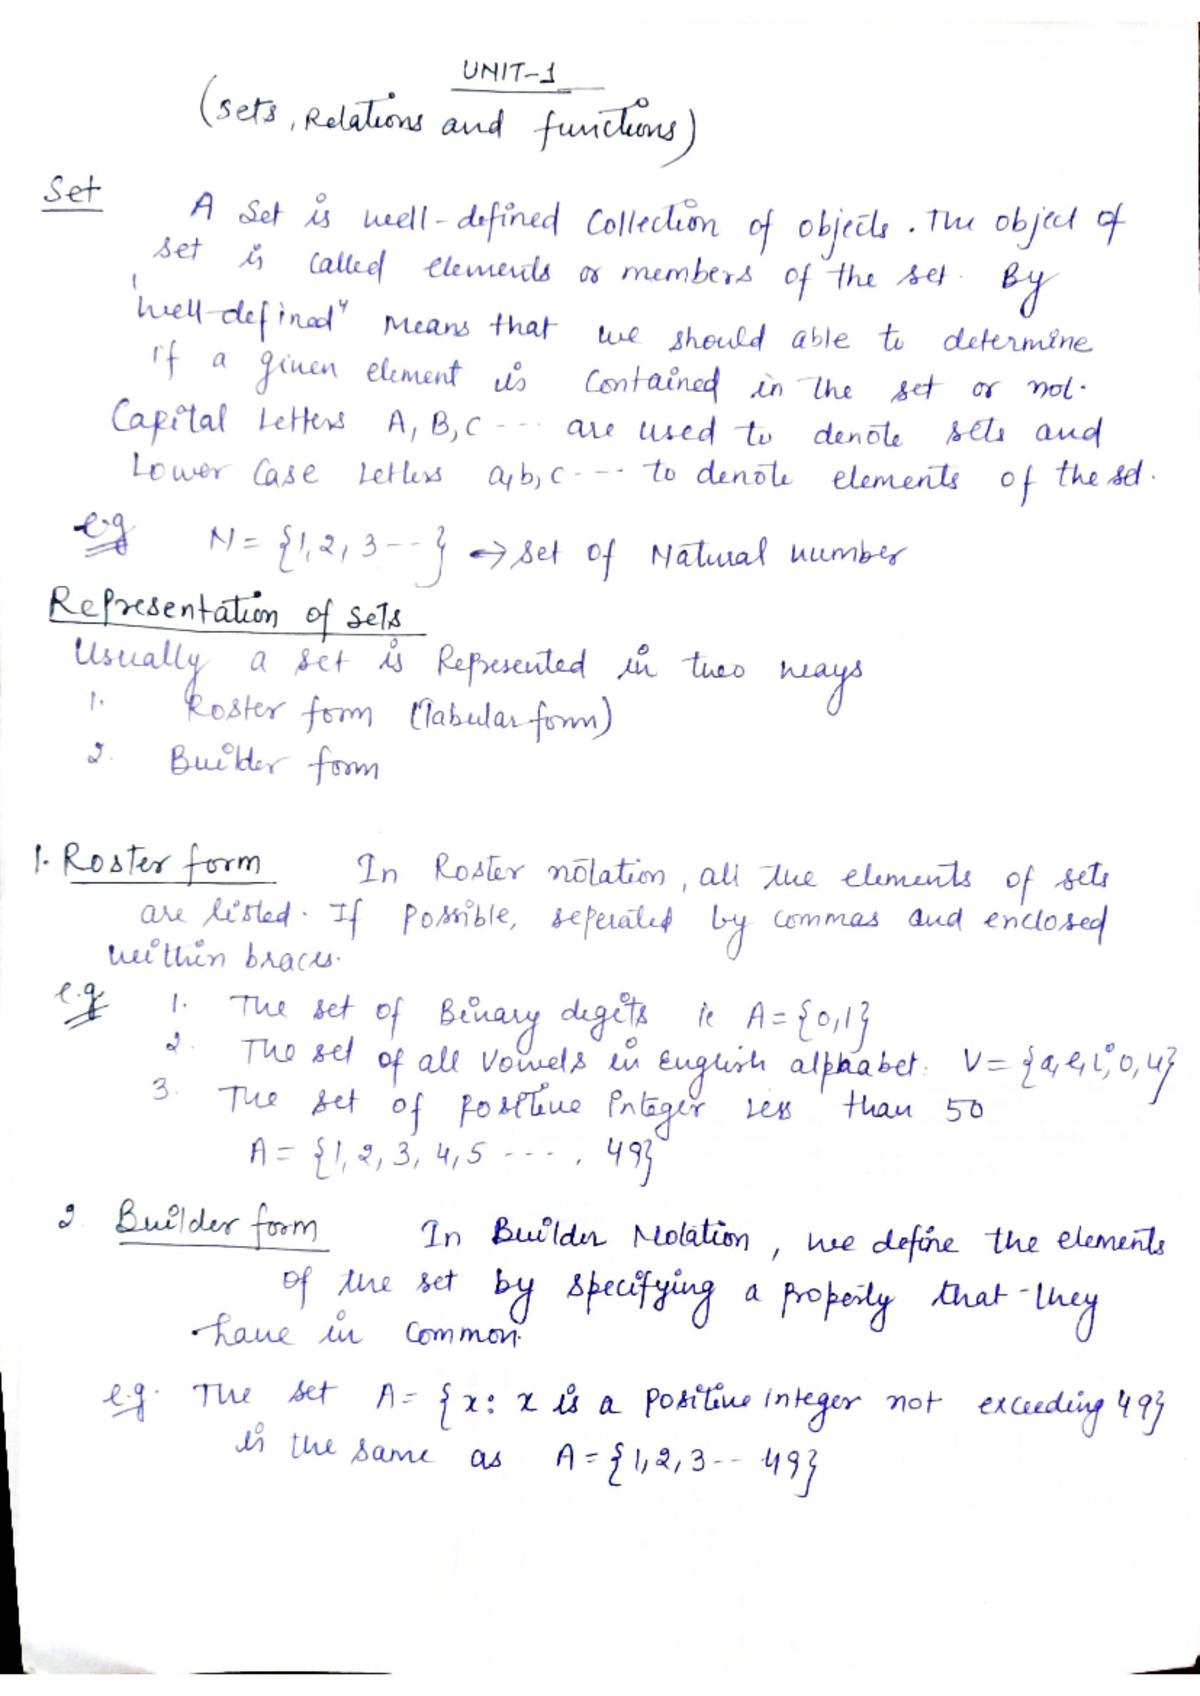 UNIT-1
(Sets, Relations and functions)
Set
A Set is well-defined Collection of objects. The object of
set is called elements or members of the set. By
"well-defined" means that we should able to determine
if a given element is contained in the set or not.
Capital Letters A, B, C --- are used to denote sets and
Lower Case Letters a, b, c --- to denote elements of the set.
e.g N = {1, 2, 3 --- } → set of Natural number
Representation of sets
Usually a set is Represented in two ways
1. Roster form (Tabular form)
2. Builder form
1. Roster form In Roster notation, all the elements of sets
are listed. If possible, seperated by commas and enclosed
within braces.
e.g 1. The set of Binary degits ie A = {0,1}
2. The set of all vowels in English alphabet. V = {a, e, i, o, u}
3. The set of positive integer less than 50
A = {1, 2, 3, 4, 5 ---- , 49}
2. Builder form In Builder Notation, we define the elements
of the set by specifying a property that they
have in common.
e.g. The set A = {x : x is a positive integer not exceeding 49}
is the same as A = {1, 2, 3 -- 49}